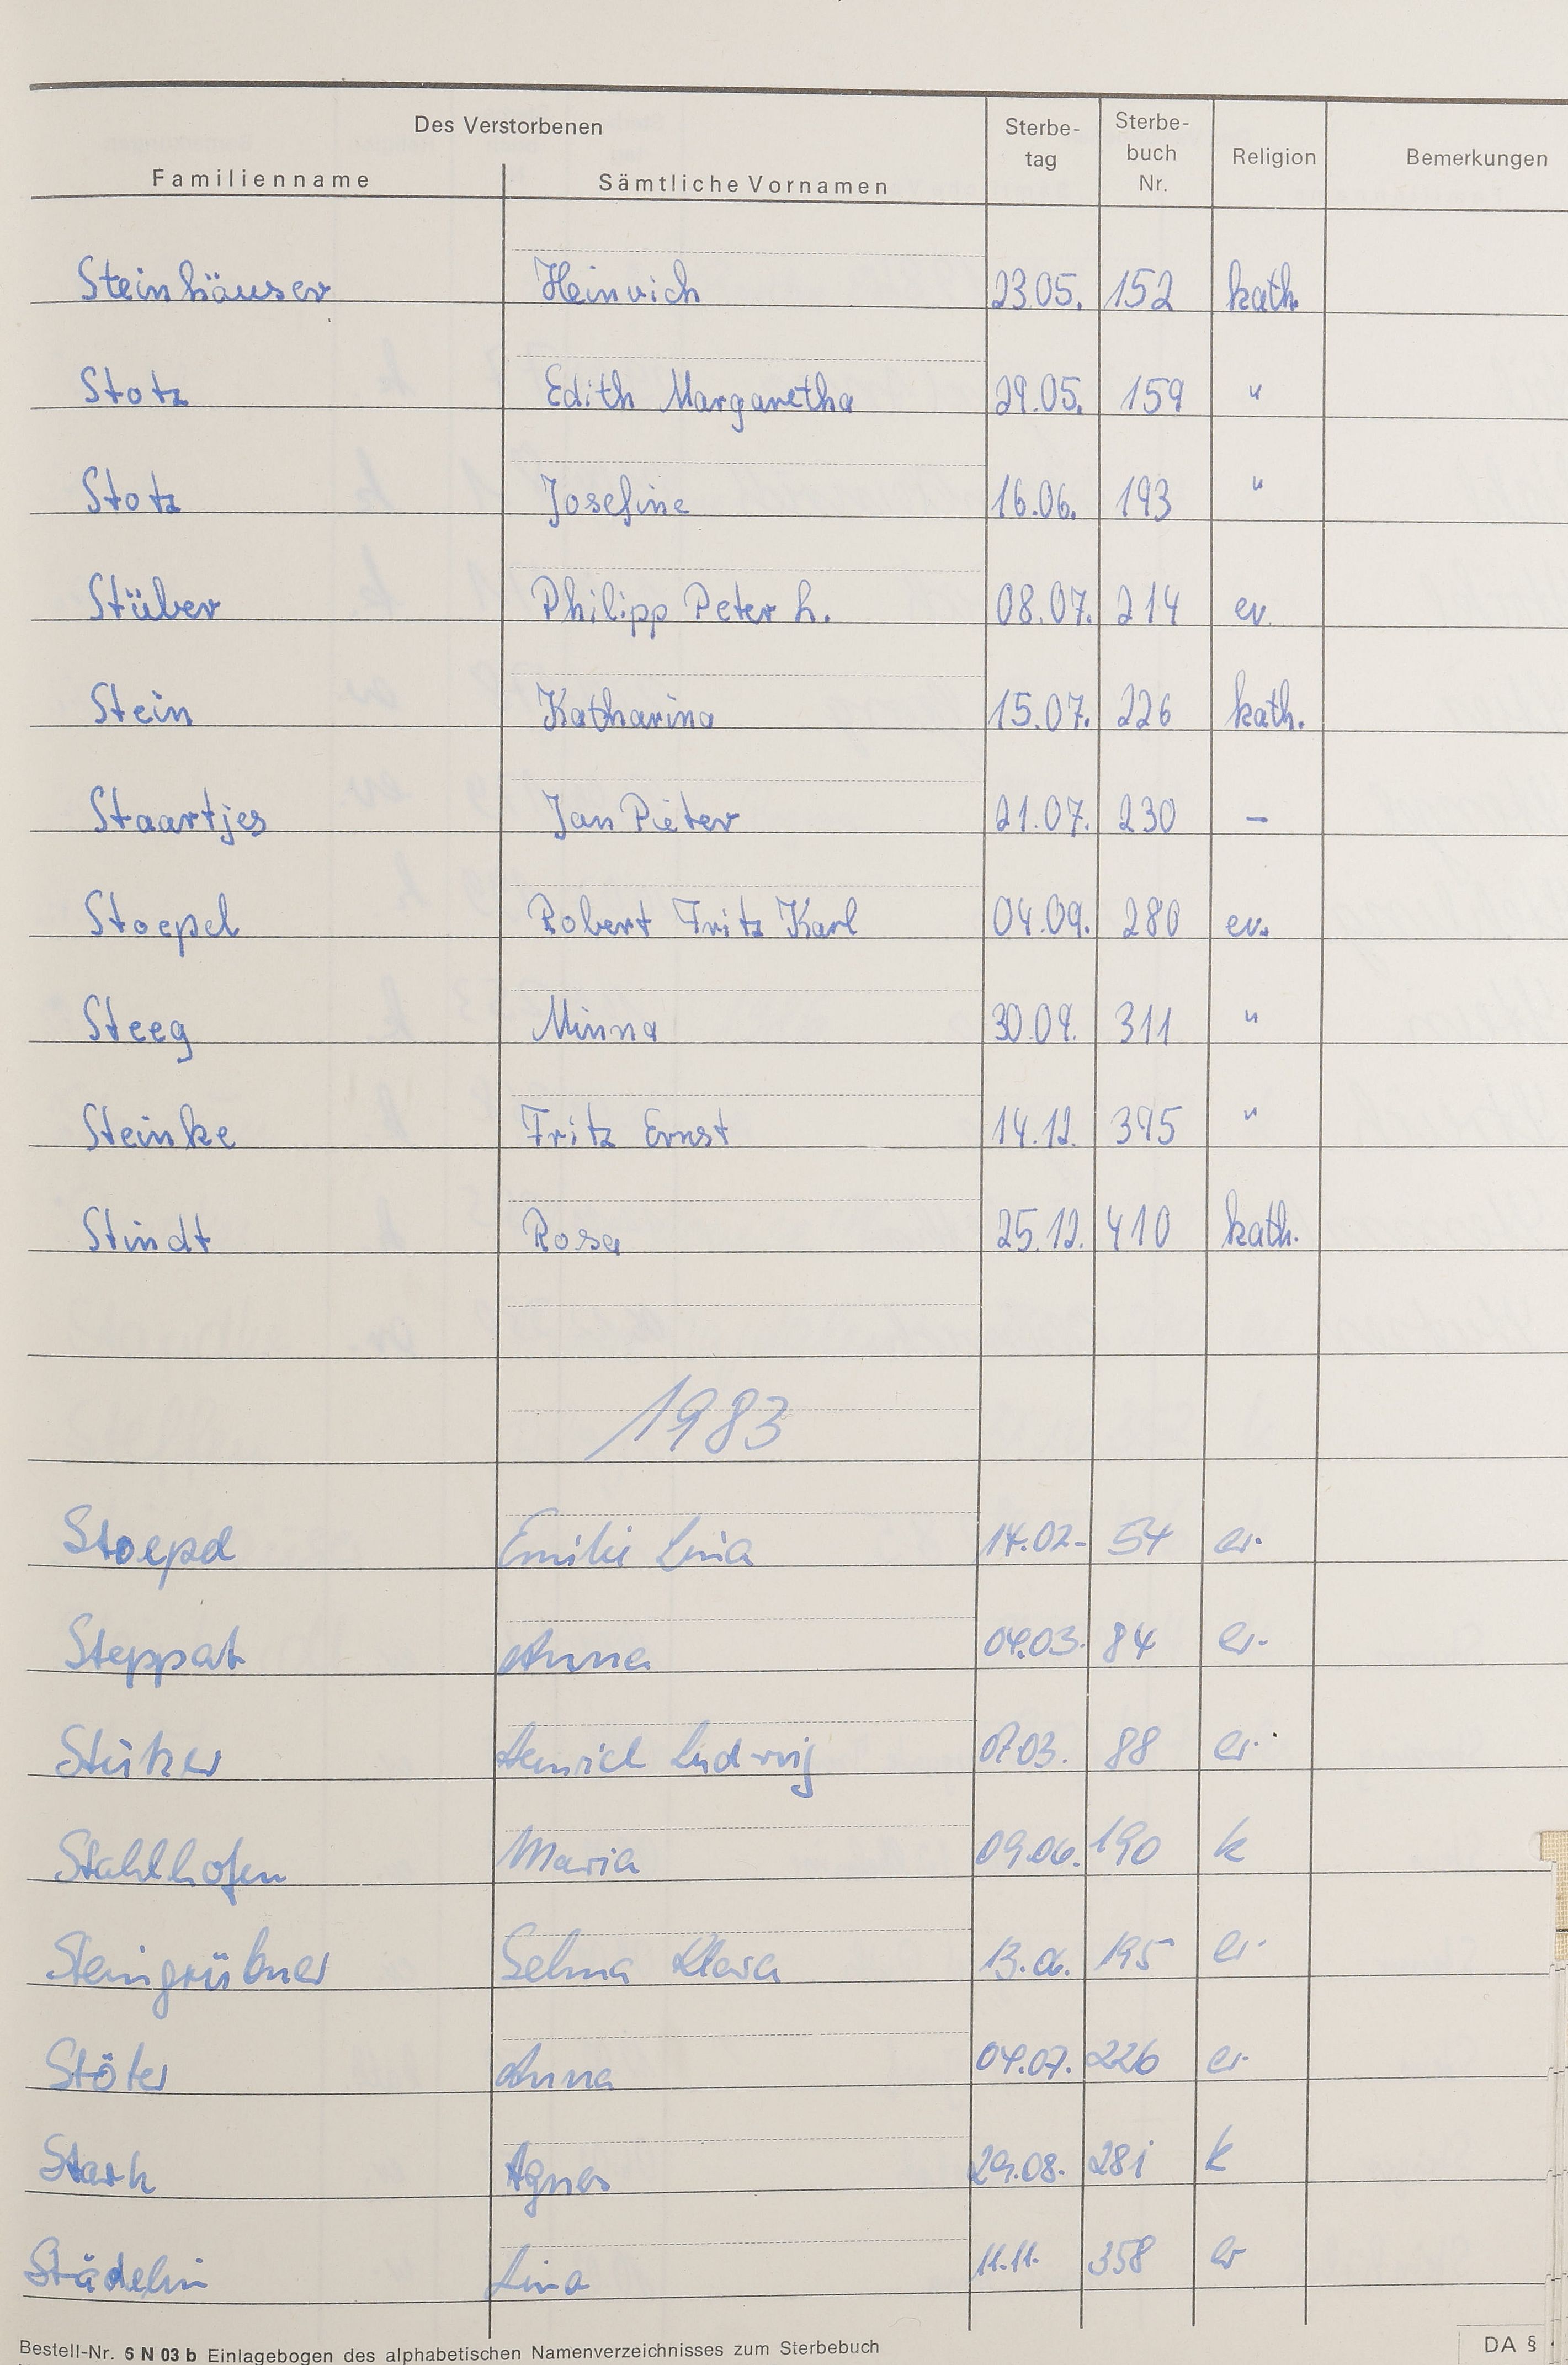 Des Verstorbenen
Familienname Sämtliche Vornamen Sterbe-tag Sterbe-buch Nr. Religion Bemerkungen
Steinhäuser Heinrich 23.05. 152 kath.
Stotz Edith Margaretha 29.05. 159 "
Stotz Josefine 16.06. 193 "
Stüber Philipp Peter H. 08.07. 214 ev.
Stein Katharina 15.07. 226 kath.
Staartjes Jan Pieter 21.07. 230 –
Stoepel Robert Fritz Karl 04.09. 280 ev.
Steeg Minna 30.09. 311 "
Steinke Fritz Ernst 14.12. 395 "
Stindt Rosa 25.12. 410 kath.
1983
Stoepel Emilie Lina 14.02. 54 ev.
Steppat Anna 04.03. 84 ev.
Stüker Heinrich Ludwig 07.03. 88 ev.
Stahlhofen Maria 09.06. 190 k
Steingrübner Selma Klara 13.06. 195 ev.
Stöter Anna 04.07. 226 ev.
Stark Agnes 29.08. 281 k
Städelin Lina 11.11. 358 ev
Bestell-Nr. 6 N 03 b Einlagebogen des alphabetischen Namenverzeichnisses zum Sterbebuch DA §